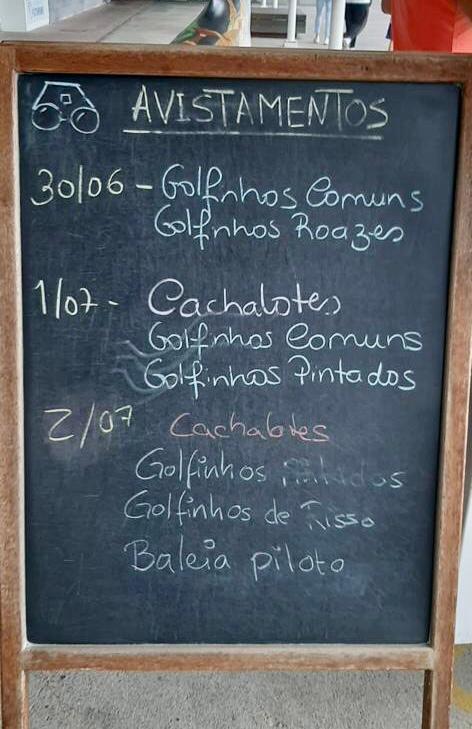 AVISTAMENTOS
30/06 - Golfinhos Comuns
Golfinhos Roazes
1/07 - Cachalotes
Golfinhos Comuns
Golfinhos Pintados
2/07 Cachalotes
Golfinhos Pintados
Golfinhos de Risso
Baleia piloto